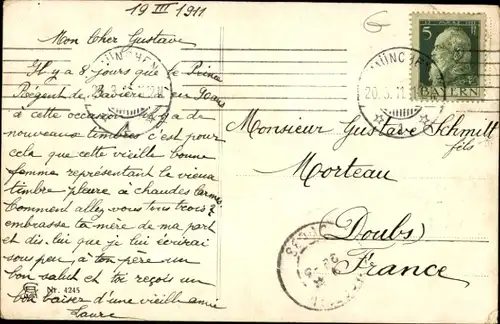 19 III 1911
Mon Cher Gustave
Il y a 8 jours que le Prince
Régent de Bavière eu 90 ans
à cette occasion il y a de
nouveaux timbres c'est pour
cela que cette vieille bonne
femme représentant le vieux
timbre pleure à chaudes larmes
Comment allez vous tous trois ?
embrasse ta mère de ma part
et dis lui que je lui écrirai
sous peu, à ton père un
bon salut et toi reçois un
baiser d'une vieille amie
Laure
Nr. 4245
MÜNCHEN
MÜNCHEN
20. 3. 11
5
BAYERN
Monsieur Gustave Schmitt
fils
Morteau
Doubs
France